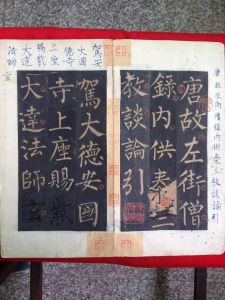 唐故左街僧錄內供奉三教談論引
唐故左街僧
錄內供奉三
教談論引
駕安
大國
德寺
上座
賜紫
大達
法師
玄
駕大德安國
寺上座賜紫
大達法師玄